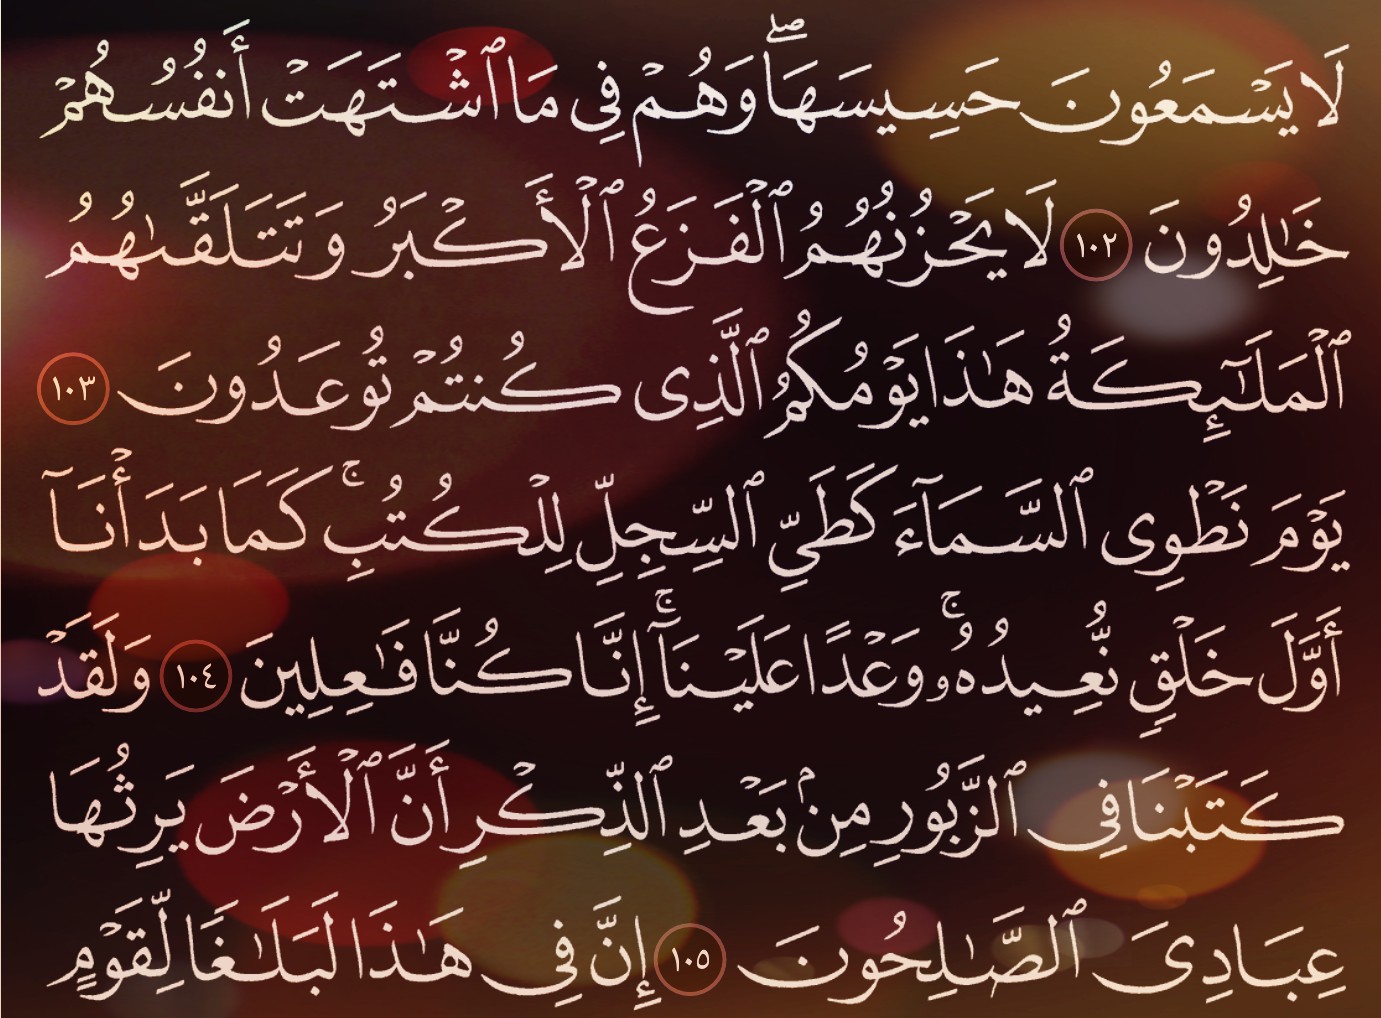 لَا يَسْمَعُونَ حَسِيسَهَا ۖ وَهُمْ فِى مَا ٱشْتَهَتْ أَنفُسُهُمْ
خَٰلِدُونَ ١٠٢ لَا يَحْزُنُهُمُ ٱلْفَزَعُ ٱلْأَكْبَرُ وَتَتَلَقَّىٰهُمُ
ٱلْمَلَٰٓئِكَةُ هَٰذَا يَوْمُكُمُ ٱلَّذِى كُنتُمْ تُوعَدُونَ ١٠٣
يَوْمَ نَطْوِى ٱلسَّمَآءَ كَطَىِّ ٱلسِّجِلِّ لِلْكُتُبِ ۚ كَمَا بَدَأْنَآ
أَوَّلَ خَلْقٍ نُّعِيدُهُۥ ۚ وَعْدًا عَلَيْنَآ ۚ إِنَّا كُنَّا فَٰعِلِينَ ١٠٤ وَلَقَدْ
كَتَبْنَا فِى ٱلزَّبُورِ مِنۢ بَعْدِ ٱلذِّكْرِ أَنَّ ٱلْأَرْضَ يَرِثُهَا
عِبَادِىَ ٱلصَّٰلِحُونَ ١٠٥ إِنَّ فِى هَٰذَا لَبَلَٰغًا لِّقَوْمٍ